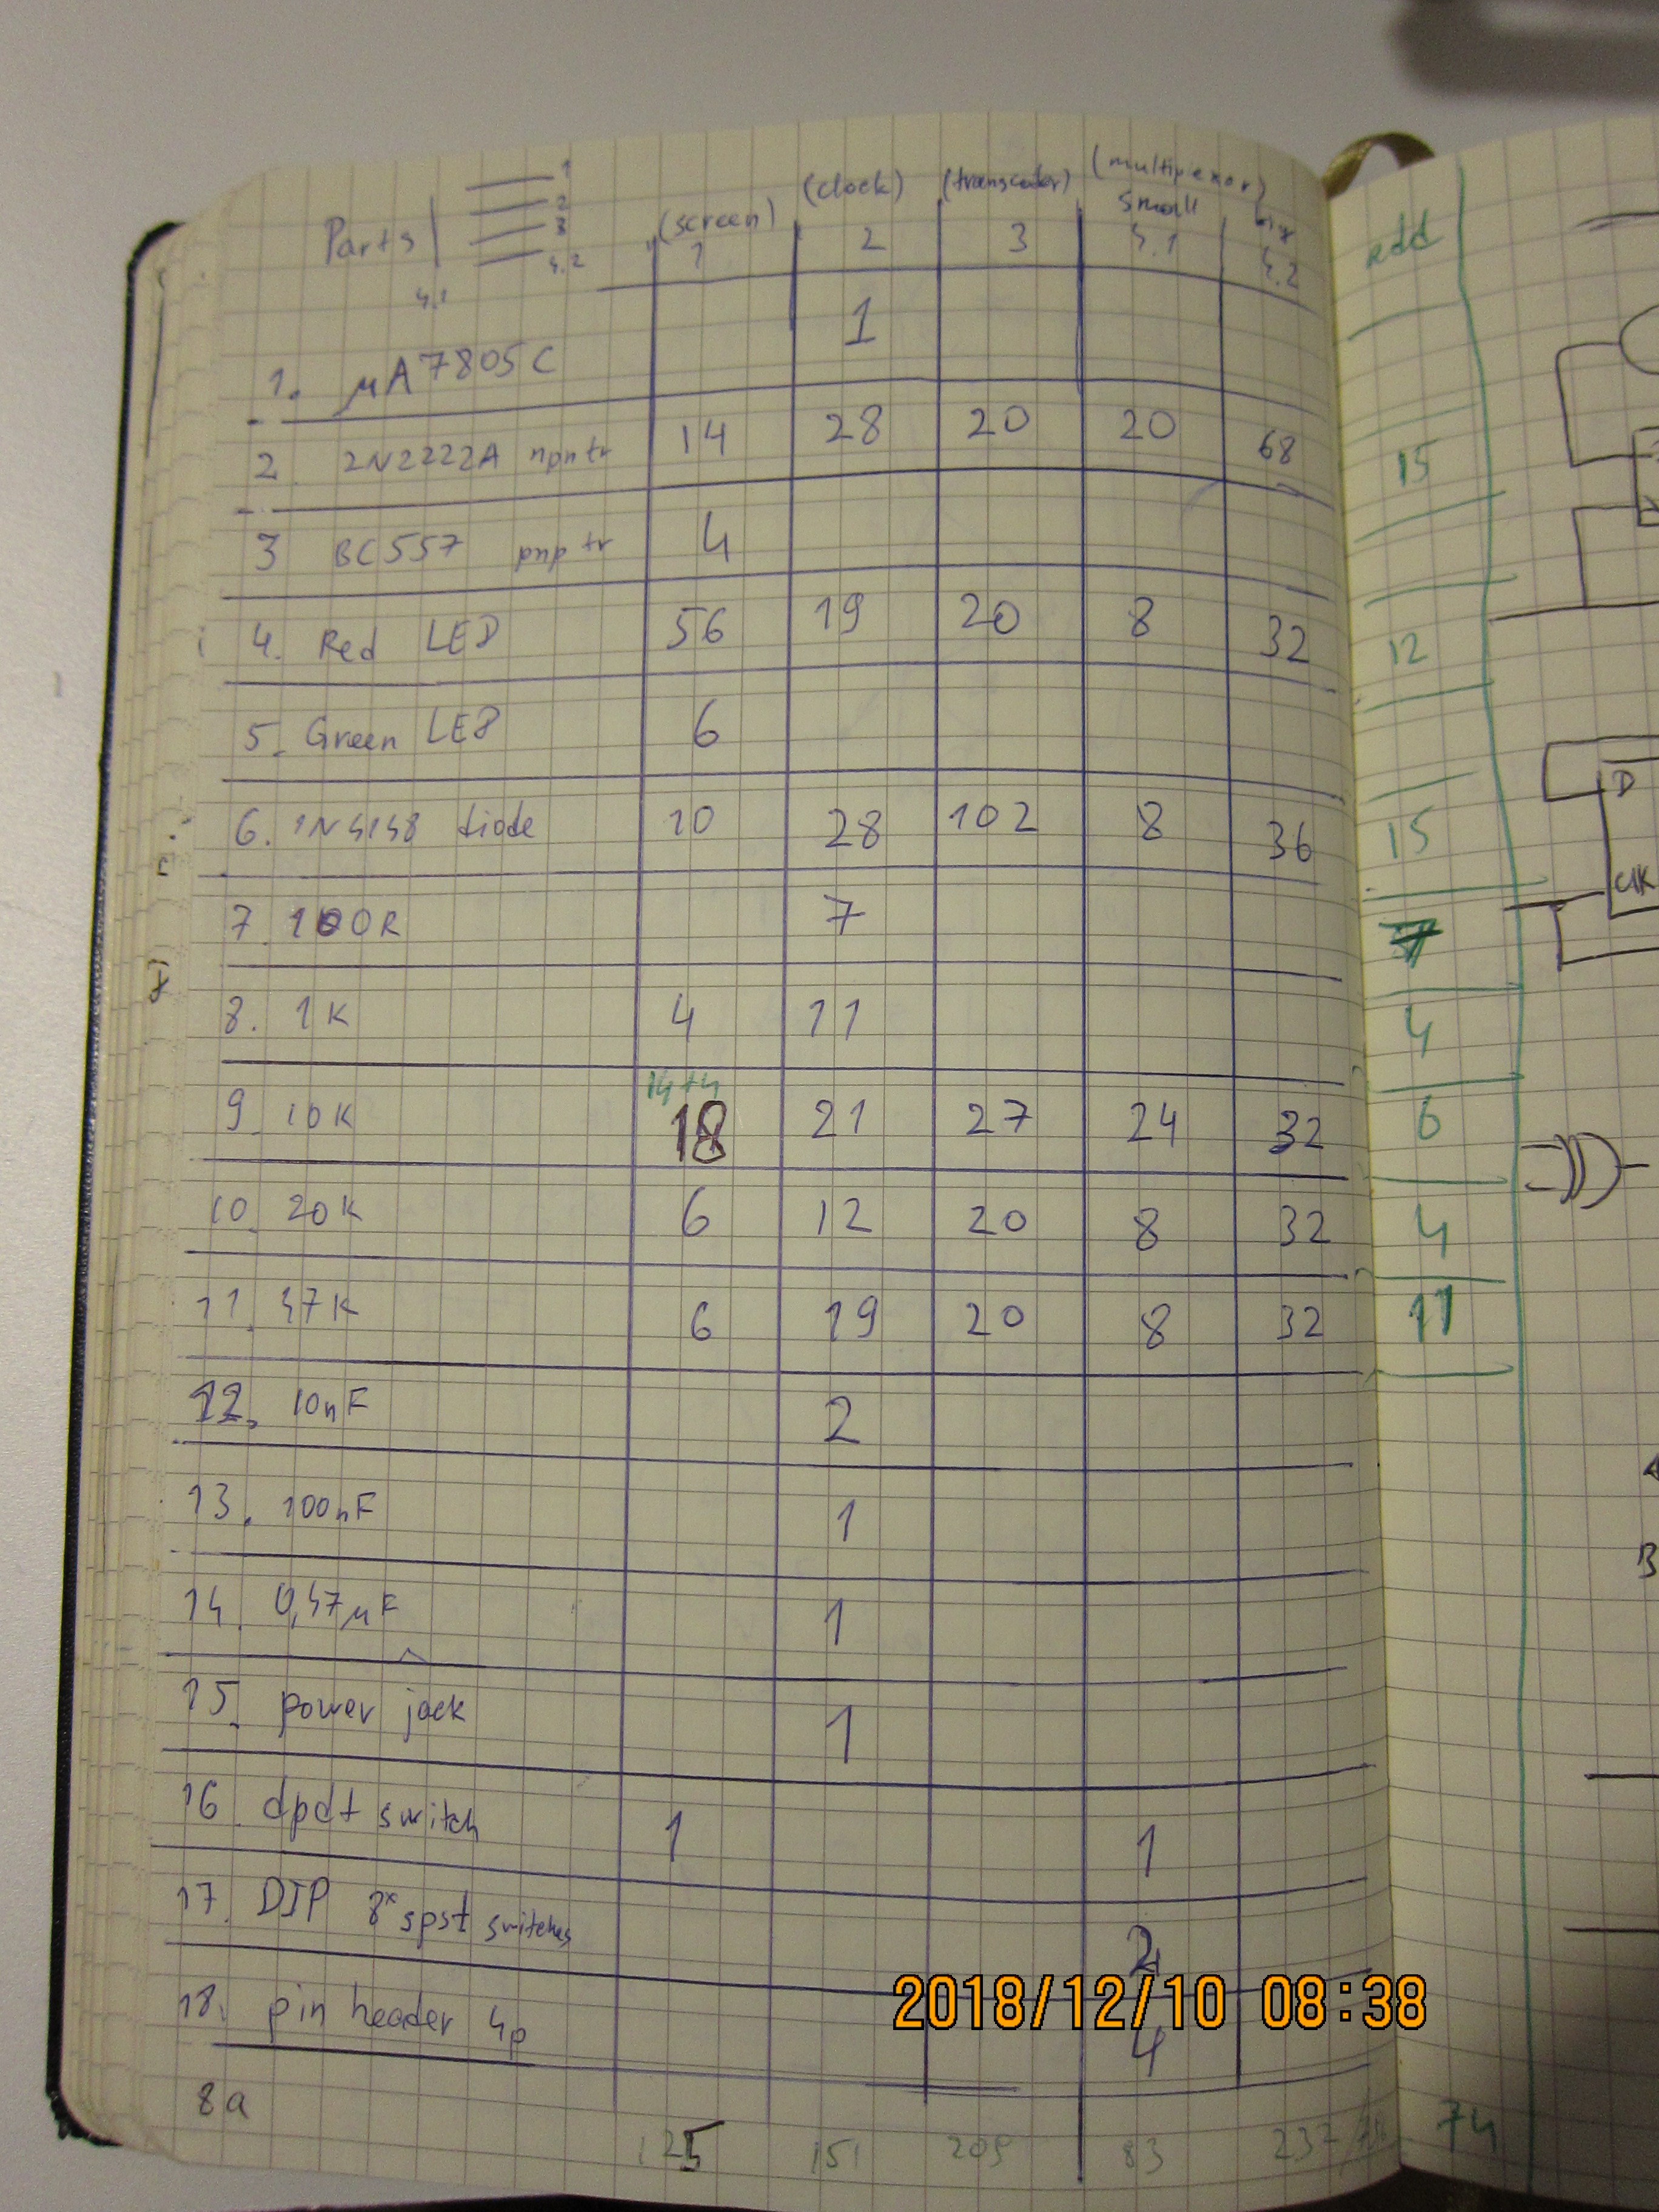 Parts 1
2
3
4.2
4.1
(screen) (clock) (transcoder) (multiplexor)
small big
1 2 3 4.1 4.2 add
1. μA7805C 1
2 2N2222A npn tr 14 28 20 20 68 15
3 BC557 pnp tr 4
4. Red LED 56 19 20 8 32 12
5. Green LED 6
6. 1N4148 diode 10 28 102 8 36 15
7. 100R 7
8. 1K 4 11 4
14+4
9. 10K 18 21 27 24 32 6
10. 20K 6 12 20 8 32 4
11. 47K 6 19 20 8 32 11
12. 10nF 2
13. 100nF 1
14. 0,47μF 1
15. power jack 1
16. dpdt switch 1 1
17. DIP 8x spst switches 2
18. pin header 4p 4
2018/12/10 08:38
8a
125 151 209 83 232 74
D
CLK
B